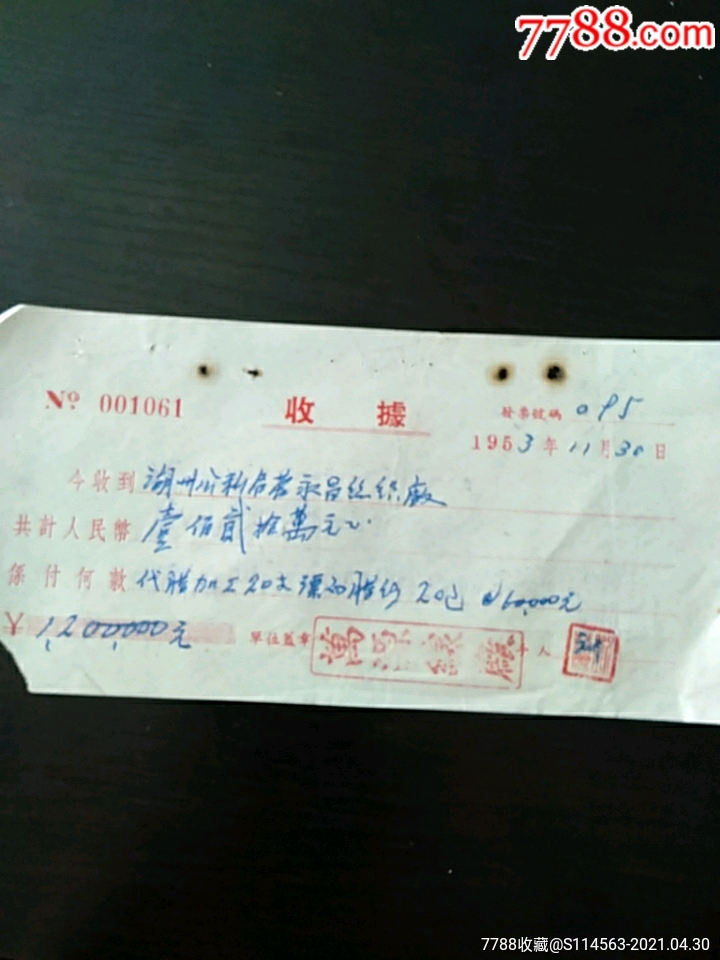 7788.com
№ 001061
收 據
發票號碼 095
1953年11月30日
今收到 湖州公私合营永昌丝织廠
共計人民幣 壹佰貳拾萬元
係付何數 代腊加工20支 腊线 20包 @60,000元
1,200,000元
單位蓋章
人
7788收藏@S114563-2021.04.30